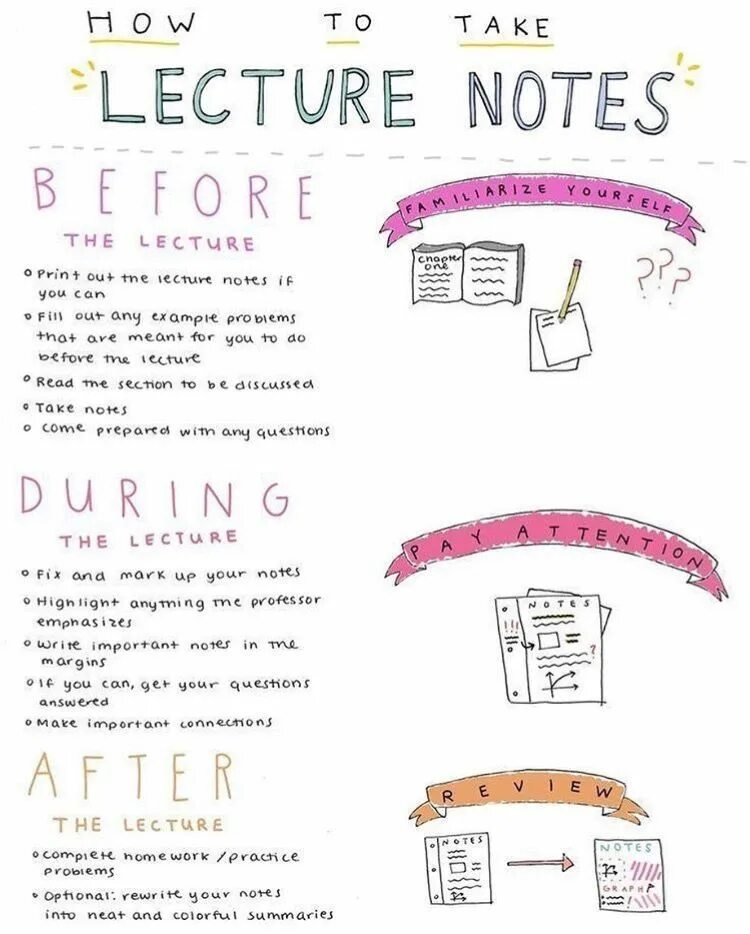 HOW TO TAKE
LECTURE NOTES
BEFORE
THE LECTURE
Print out the lecture notes if
you can
Fill out any example problems
that are meant for you to do
before the lecture
Read the section to be discussed
Take notes
come prepared with any questions
FAMILIARIZE YOURSELF
Chapter
one
???
DURING
THE LECTURE
Fix and mark up your notes
Highlight anything the professor
emphasizes
Write important notes in the
margins
If you can, get your questions
answered
Make important connections
PAY ATTENTION
NOTES
!!!
?
AFTER
THE LECTURE
complete homework/practice
problems
Optional: rewrite your notes
into neat and colorful summaries
REVIEW
NOTES
NOTES
GRAPH
!